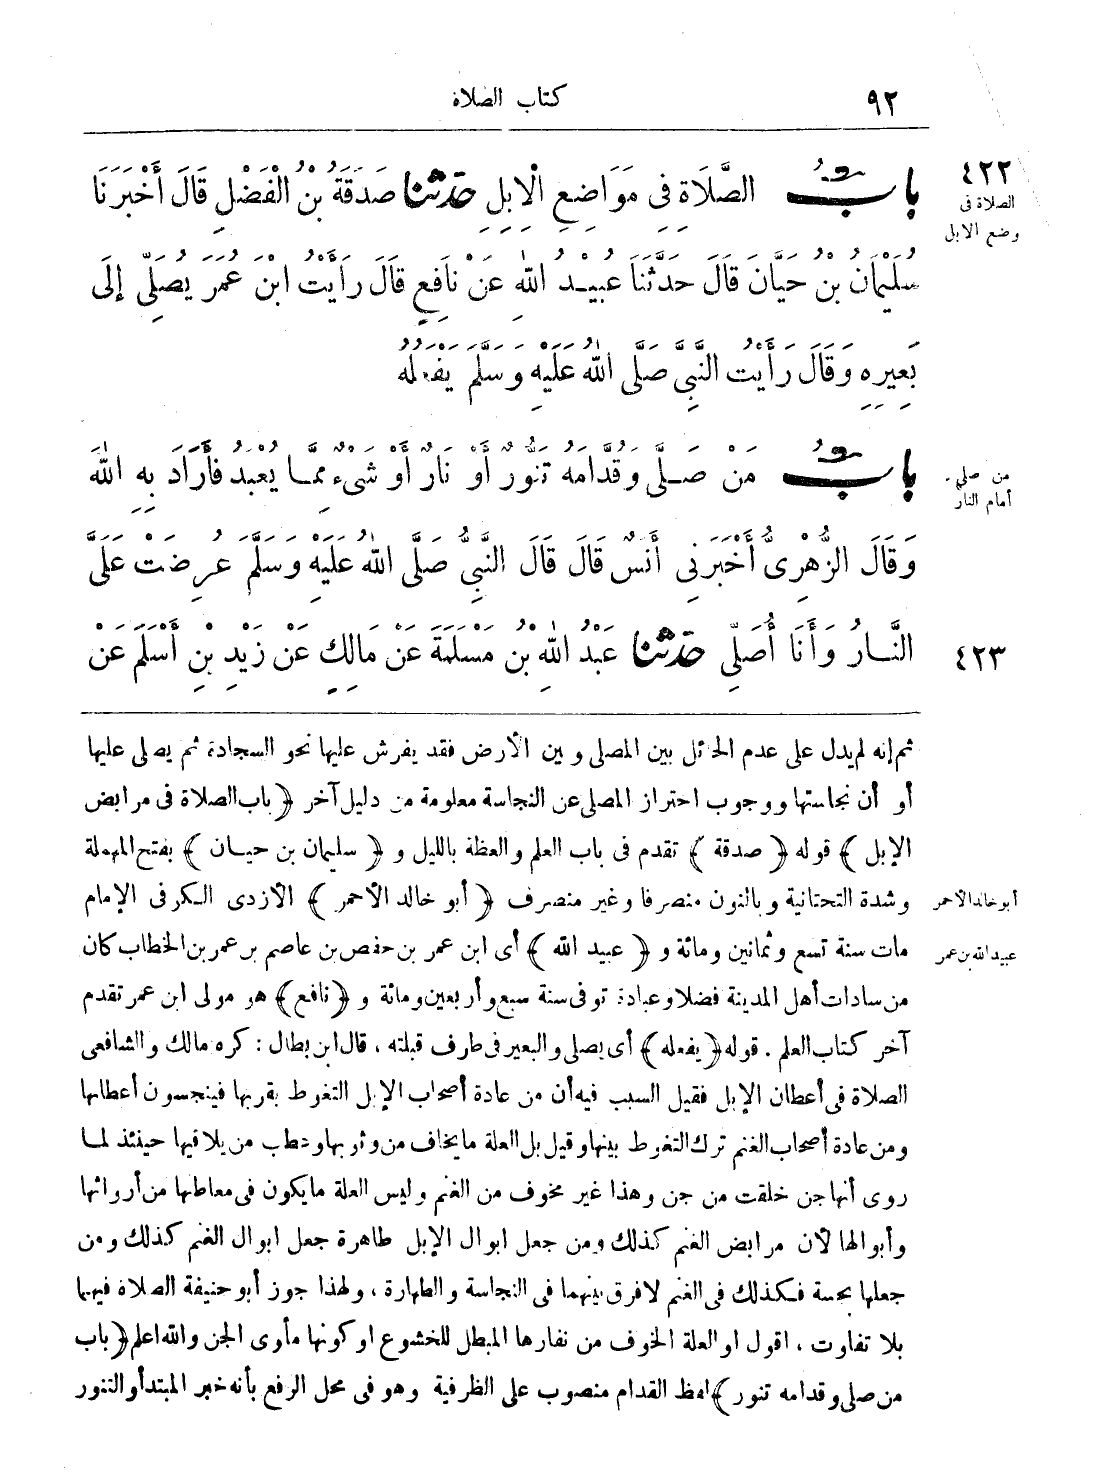 ٩٢
كتاب الصلاة
٤٢٢
الصلاة فى
وضع الابل
بابُ الصَّلَاةِ فِى مَوَاضِعِ الْإِبِلِ حدثنا صَدَقَةُ بْنُ الْفَضْلِ قَالَ أَخْبَرَنَا
سُلَيْمَانُ بْنُ حَيَّانَ قَالَ حَدَّثَنَا عُبَيْدُ اللهِ عَنْ نَافِعٍ قَالَ رَأَيْتُ ابْنَ عُمَرَ يُصَلِّى إِلَى
بَعِيرِهِ وَقَالَ رَأَيْتُ النَّبِىَّ صَلَّى اللهُ عَلَيْهِ وَسَلَّمَ يَفْعَلُهُ
من صلى
أمام النار
بابُ مَنْ صَلَّى وَقُدَّامَهُ تَنُّورٌ أَوْ نَارٌ أَوْ شَىْءٌ مِمَّا يُعْبَدُ فَأَرَادَ بِهِ اللهَ
وَقَالَ الزُّهْرِىُّ أَخْبَرَنِى أَنَسٌ قَالَ قَالَ النَّبِىُّ صَلَّى اللهُ عَلَيْهِ وَسَلَّمَ عُرِضَتْ عَلَىَّ
٤٢٣
النَّارُ وَأَنَا أُصَلِّى حدثنا عَبْدُ اللهِ بْنُ مَسْلَمَةَ عَنْ مَالِكٍ عَنْ زَيْدِ بْنِ أَسْلَمَ عَنْ
ثم إنه لم يدل على عدم الحائل بين المصلى وبين الأرض فقد يفرش عليها نحو السجادة ثم يصلى عليها
أو أن نجاستها ووجوب احتراز المصلى عن النجاسة معلومة من دليل آخر ﴿باب الصلاة فى مرابض
الإبل﴾ قوله ﴿صدقة﴾ تقدم فى باب العلم والعظة بالليل و ﴿سليمان بن حيان﴾ بفتح المهملة
أبو خالد الأحمر
وشدة التحتانية وبالنون منصرفا وغير منصرف ﴿أبو خالد الأحمر﴾ الأزدى الكوفى الإمام
عبيد الله بن عمر
مات سنة تسع وثمانين ومائة و ﴿عبيد الله﴾ أى ابن عمر بن حفص بن عاصم بن عمر بن الخطاب كان
من سادات أهل المدينة فضلا وعبادة توفى سنة سبع وأربعين ومائة و ﴿نافع﴾ هو مولى ابن عمر تقدم
آخر كتاب العلم . قوله ﴿يفعله﴾ أى يصلى والبعير فى طرف قبلته ، قال ابن بطال : كره مالك والشافعى
الصلاة فى أعطان الإبل فقيل السبب فيه أن من عادة أصحاب الإبل التغوط بقربها فينجسون أعطانها
ومن عادة أصحاب الغنم ترك التغوط بينها وقيل بل العلة ما يخاف من وثوبها وعطب من يلاقيها حينئذ لما
روى أنها جن خلقت من جن وهذا غير مخوف من الغنم وليس العلة ما يكون فى معاطنها من أرواثها
وأبوالها لأن مرابض الغنم كذلك ومن جعل ابوال الإبل طاهرة جعل ابوال الغنم كذلك ومن
جعلها نجسة فكذلك فى الغنم لا فرق بينهما فى النجاسة والطهارة ، ولهذا جوز أبو حنيفة الصلاة فيهما
بلا تفاوت ، اقول او العلة الخوف من نفارها المبطل للخشوع او كونها مأوى الجن والله اعلم ﴿باب
من صلى وقدامه تنور﴾ لفظ القدام منصوب على الظرفية وهو فى محل الرفع بأنه خبر المبتدأ والتنور